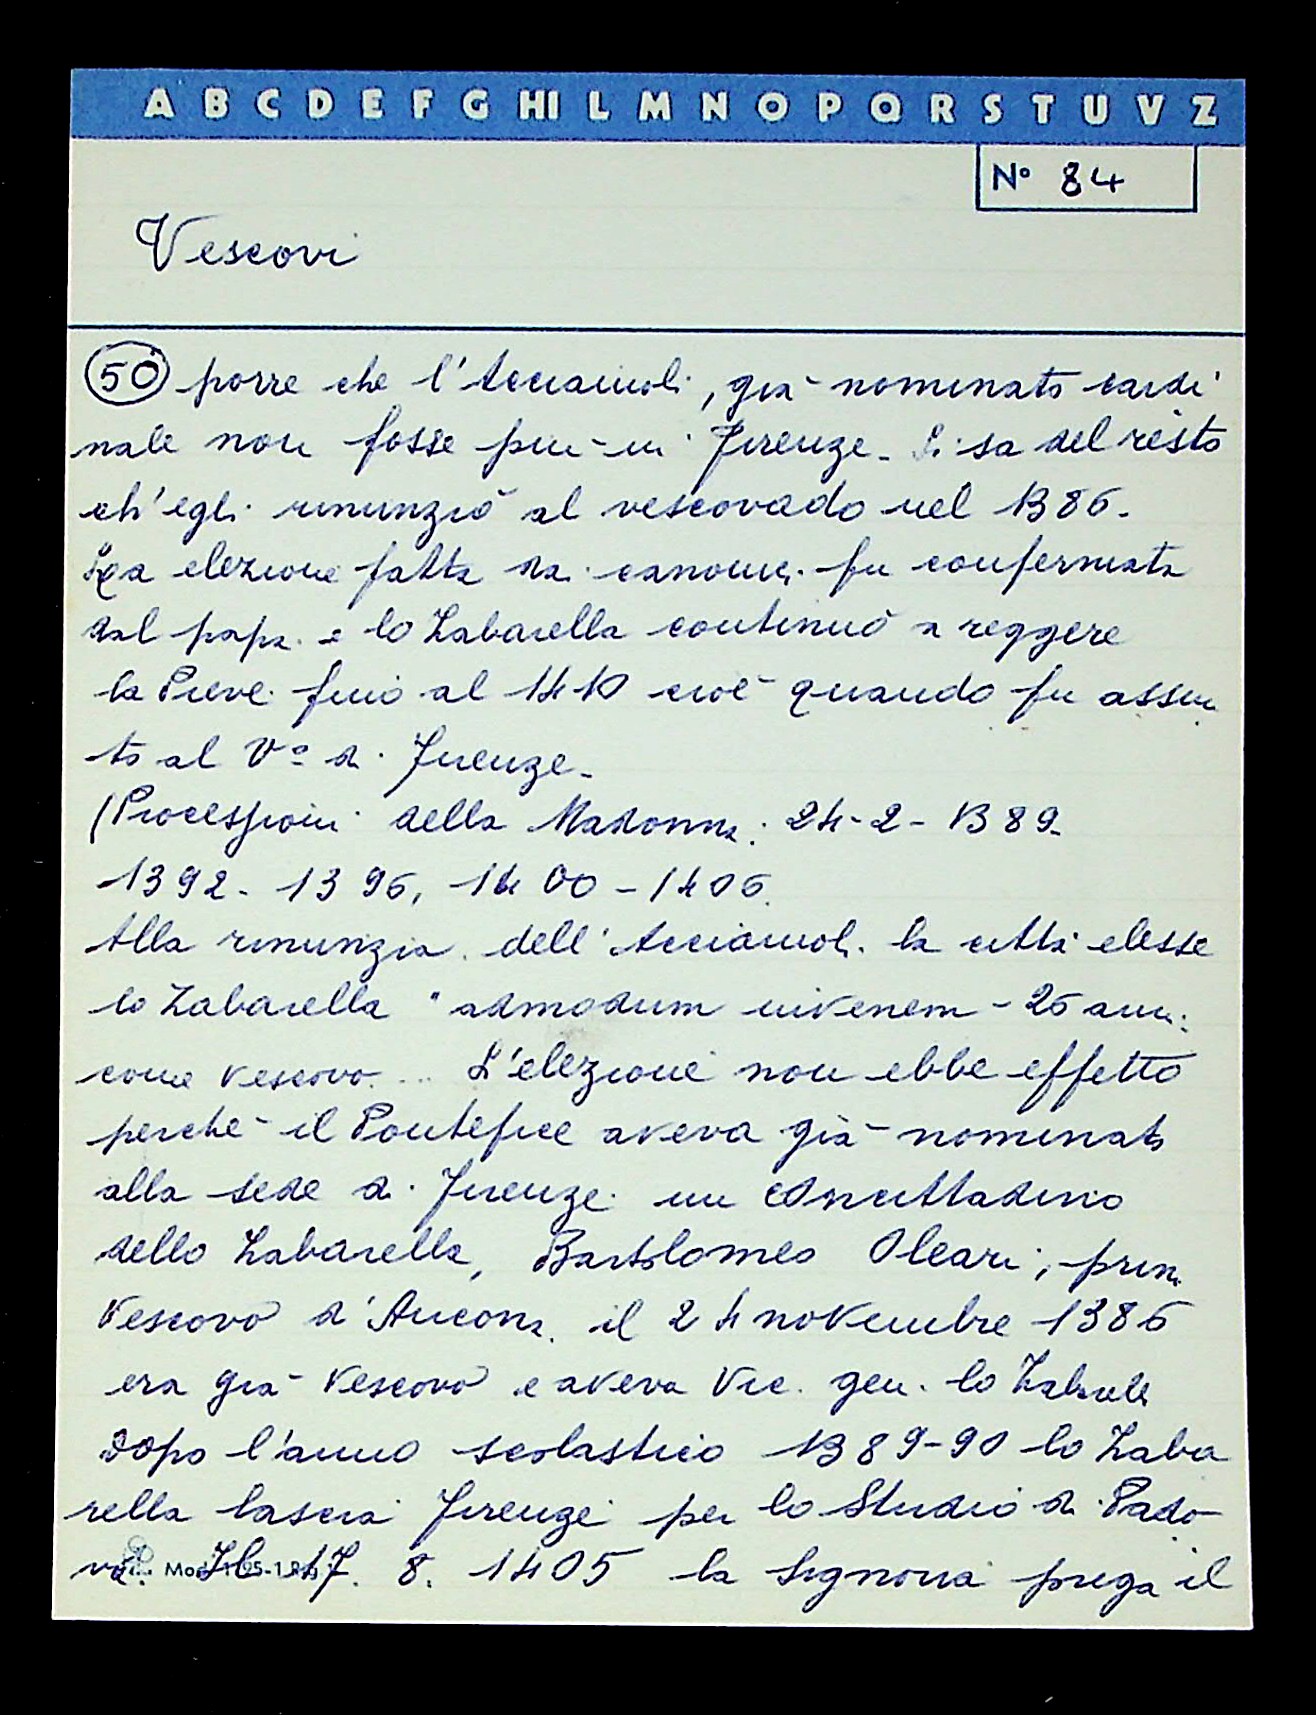 A B C D E F G H I L M N O P Q R S T U V Z
N° 84
Vescovi
50 porre che l'Acciaiuoli, già nominato cardi
nale non fosse più in Firenze. Si sa del resto
ch'egli rinunziò al vescovado nel 1386.
La elezione fatta dai canonici fu confermata
dal papa e lo Zabarella continuò a reggere
la Pieve fino al 1410 cioè quando fu assun
to al Vº di Firenze.
(Processioni della Madonna: 24-2-1389.
1392. 1396, 1400-1406.
Alla rinunzia dell'Acciaiuoli la città elesse
lo Zabarella "admodum iuvenem - 26 anni
come vescovo... L'elezione non ebbe effetto
perché il Pontefice aveva già nominato
alla sede di Firenze un concittadino
dello Zabarella, Bartolomeo Oleari, prima
Vescovo d'Ancona. il 24 novembre 1386
era già Vescovo e aveva Vic. gen. lo Zabarella
Dopo l'anno scolastico 1389-90 lo Zaba
rella lascia Firenze per lo Studio di Pado
va. Il 17. 8. 1405 la Signoria prega il